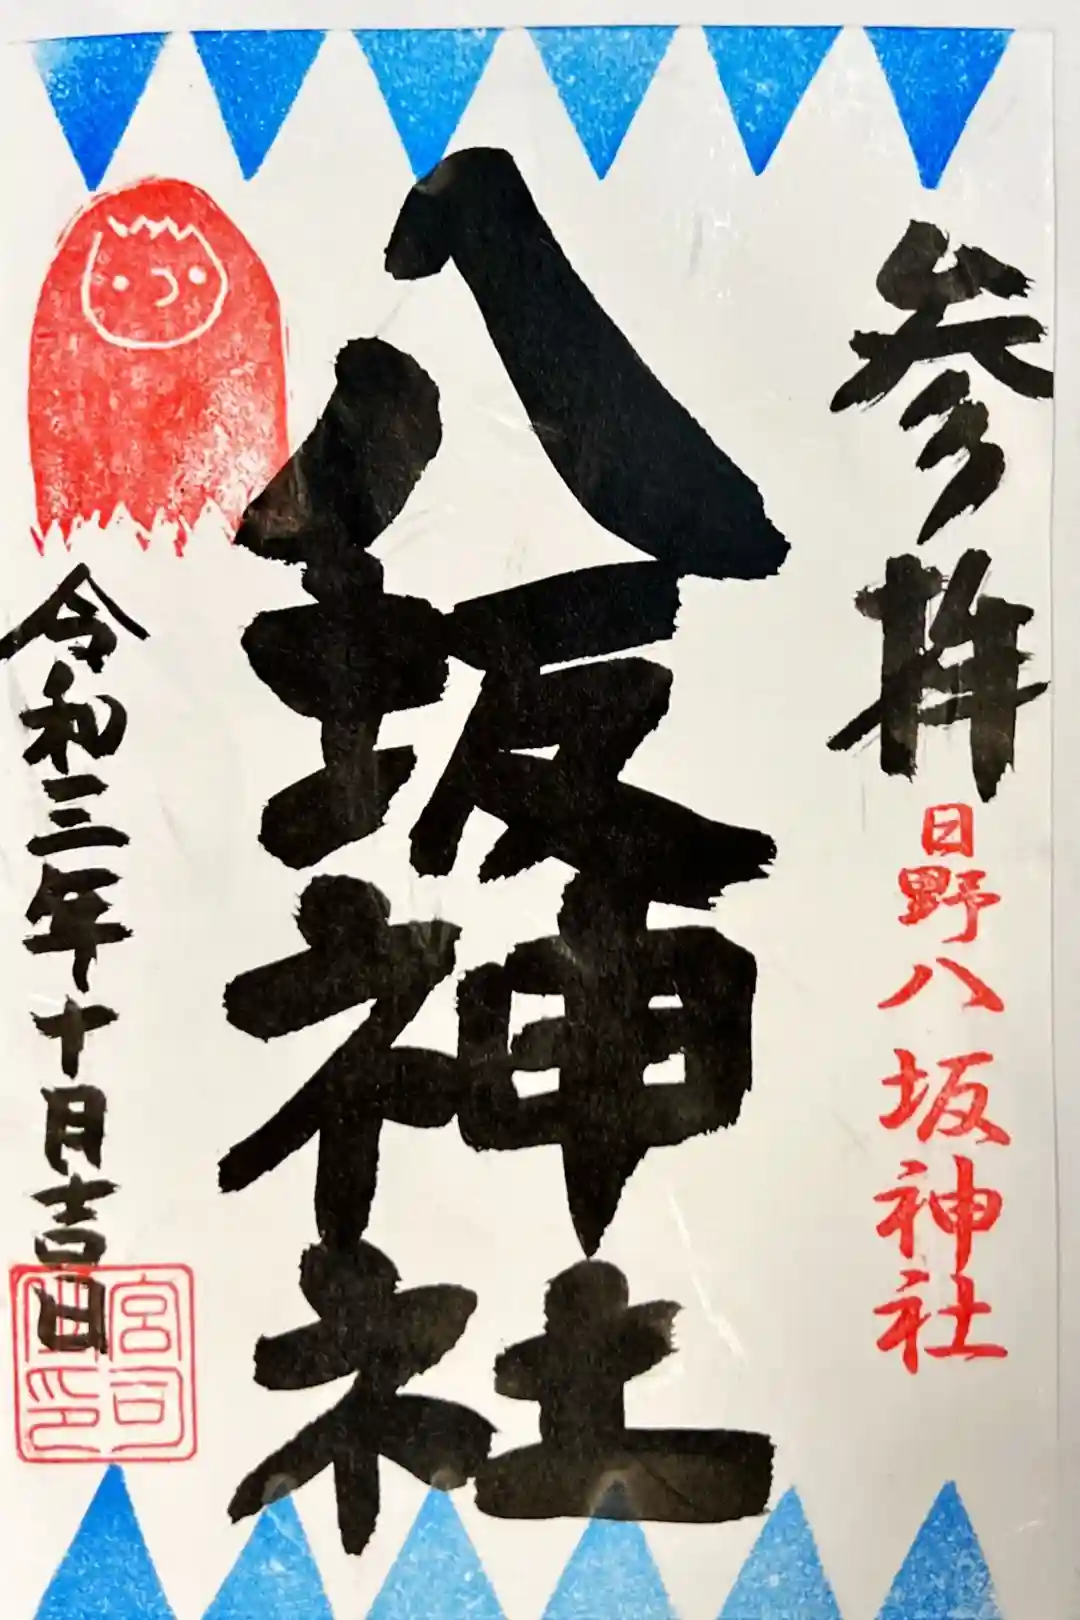 参拝
日野八坂神社
八坂神社
令和三年十月吉日
宮司之印